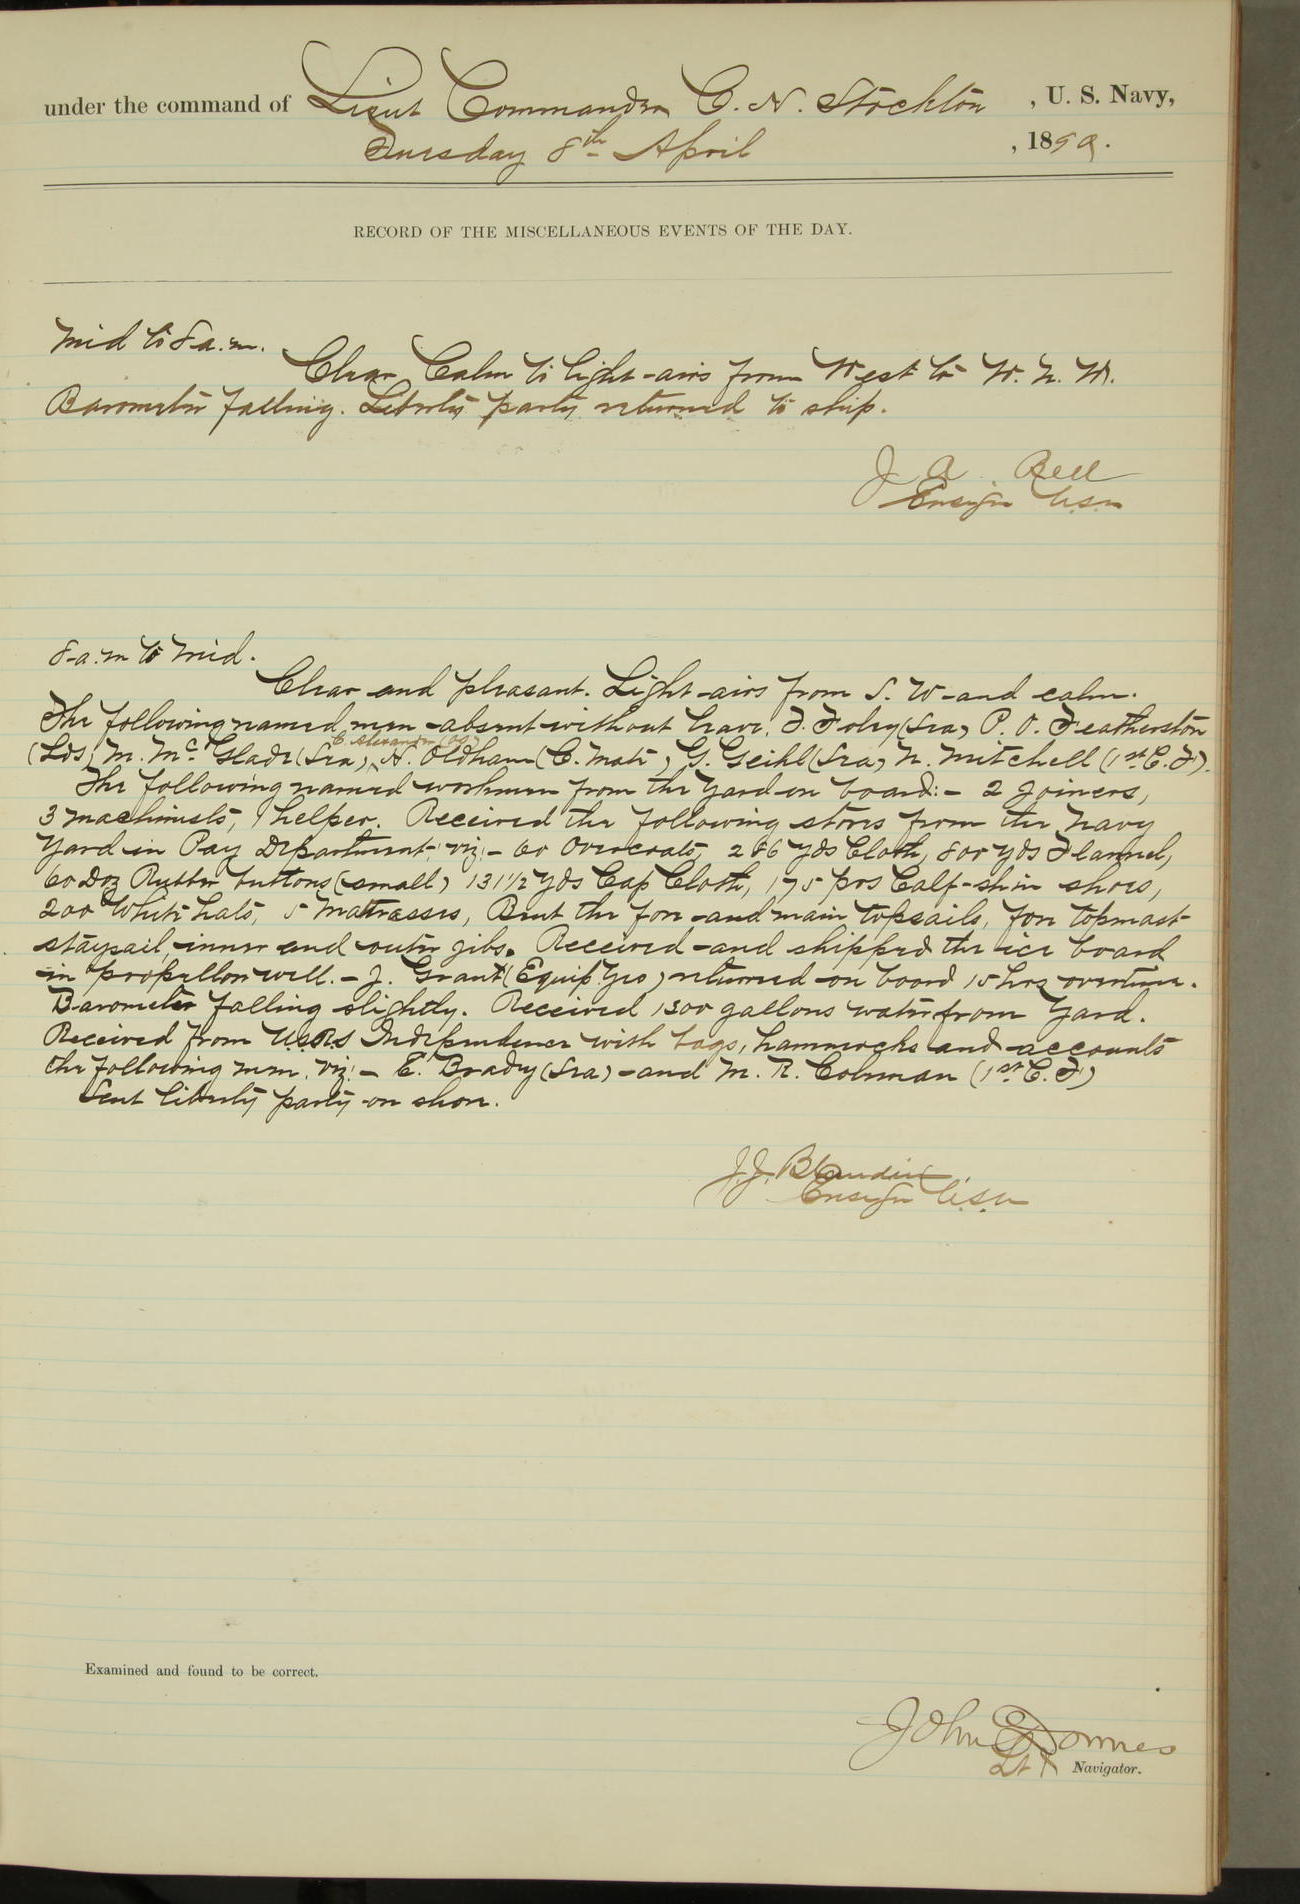 under the command of Lieut Commander C. H. Stockton , U. S. Navy,
Tuesday 8th April , 1890.
RECORD OF THE MISCELLANEOUS EVENTS OF THE DAY.
Mid to 8 a.m.
Clear Calm to light airs from West to W. N. W.
Barometer falling. Liberty party returned to ship.
J A Bell
Ensign U.S.N
8 a.m to Mid.
Clear and pleasant. Light airs from S. W and calm.
The following named men absent without leave, F. Foley (Sea) P. O. Featherston
C. Alexander
(Lds) M. McGlade (Sea), H. Oldham (C. Mate), G. Geihl (Sea) N. Mitchell (1st C. F).
The following named workmen from the Yard on board:- 2 Joiners,
3 machinists, 1 helper. Received the following stores from the Navy
Yard in Pay Department viz:- 60 Overcoats, 286 yds Cloth, 800 yds Flannel,
60 Doz Rubber buttons (small) 131 1/2 yds Cap Cloth, 175 prs Calf-skin shoes,
200 White hats, 5 Mattrasses, Bent the fore and main topsails, fore topmast
staysail, inner and outer jibs. Received and shipped the ice board
in propellor well. - J. Grant (Equip Yeo) returned on board 15 hrs overtime.
Barometer falling slightly. Received 1300 gallons water from Yard.
Received from U.S.R.S Independence with bags, hammocks and accounts
the following men, viz:- E. Brady (Sea) and M. R. Colman (1st C. F)
Sent liberty party on shore.
J. J. Blandin
Ensign U.S.N
Examined and found to be correct.
John Downes
Lt Navigator.